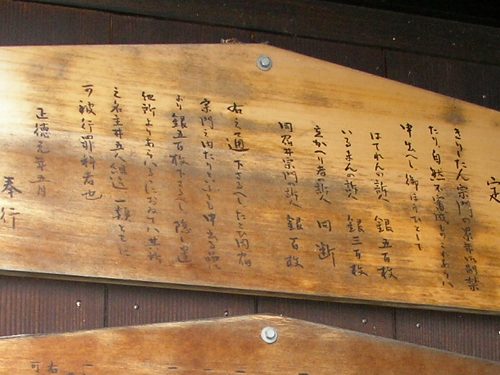 定
きりしたん宗門は累年御制禁
たり自然不審成ものこれあらハ
申出へし御ほうひとして
はてれんの訴人 銀五百枚
いるまんの訴人 銀三百枚
立かへり者の訴人 同断
同宿并宗門の訴人 銀百枚
右之通下さるへしたとひ同宿
宗門之内たりといふとも申出る品に
より銀五百枚下さるへし隠し置
他所よりあらはるゝにおゐてハ其所
之名主并五人組迄一類ともに
可被行罪科者也
正徳元年五月
奉行
右
可